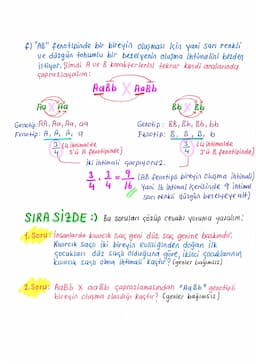 f) "AB" fenotipinde bir bireyin oluşması için yani sarı renkli
ve düzgün tohumlu bir bezelyenin oluşma ihtimalini bizden
istiyor. Şimdi A ve B karakterlerini tekrar kendi aralarında
çaprazlayalım:
AaBb X AaBb
Aa X Aa
Bb X Bb
Genotip: AA, Aa, Aa, aa
Genotip: BB, Bb, Bb, bb
Fenotip: A, A, A, a
Fenotip: B, B, B, b
3/4 (4 ihtimalde 3'ü A fenotipinde)
3/4 (4 ihtimalde 3'ü B fenotipinde)
iki ihtimali çarpıyoruz.
3/4 . 3/4 = 9/16 (AB fenotipli bireyin oluşma ihtimali)
Yani 16 ihtimal içerisinde 9 ihtimal
sarı renkli düzgün bezelyeye ait)
SIRA SİZDE :) Bu soruları çözüp cevabı yoruma yazalım:
1. Soru: İnsanlarda kıvırcık saç geni düz saç genine baskındır.
Kıvırcık saçlı iki bireyin evliliğinden doğan ilk
çocukları düz saçlı olduğuna göre, ikinci çocuklarının
kıvırcık saçlı olma ihtimali kaçtır? (genler bağımsız)
2. Soru: AaBb X aaBb çaprazlamasından "AaBb" genotipli
bireyin oluşma olasılığı kaçtır? (genler bağımsız)